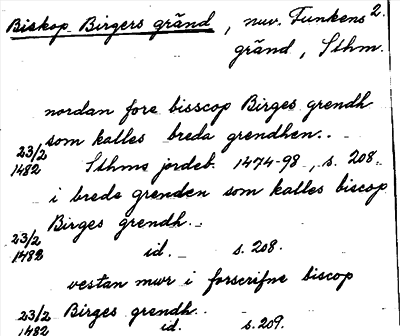 Biskop Birgers gränd, nuv. Funkens 2.
gränd, Sthm.
nordan fore bisscop Birges grendh
som kalles breda grendhen..
23/2 1482 Sthms jordeb. 1474-98, s. 208.
i breda grenden som kalles biscop
Birges grendh..
23/2 1482 id. s. 208.
vestan mwr i forscrifne biscop
Birges grendh..
23/2 1482 id. s. 209.